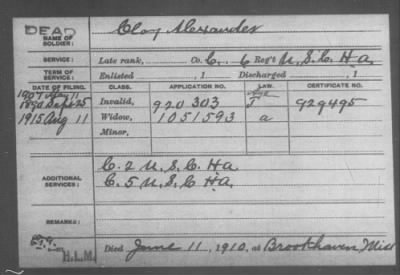 DEAD
NAME OF SOLDIER: Cloy Alexander
SERVICE: Late rank, Co. C, 6 Reg't U. S. C. H a.
TERM OF SERVICE: Enlisted , 1 Discharged , 1
DATE OF FILING. CLASS. APPLICATION NO. LAW. CERTIFICATE NO.
1907 May 11
1890 Sept 25 Invalid, 920 303 J 929495
1915 Aug 11 Widow, 1051,593 a
Minor,
C. 2 U. S. C. H a.
ADDITIONAL SERVICES: C. 5 U. S. C H a.
REMARKS:
H.L.M. Died June 11, 1910, at Brookhaven, Miss